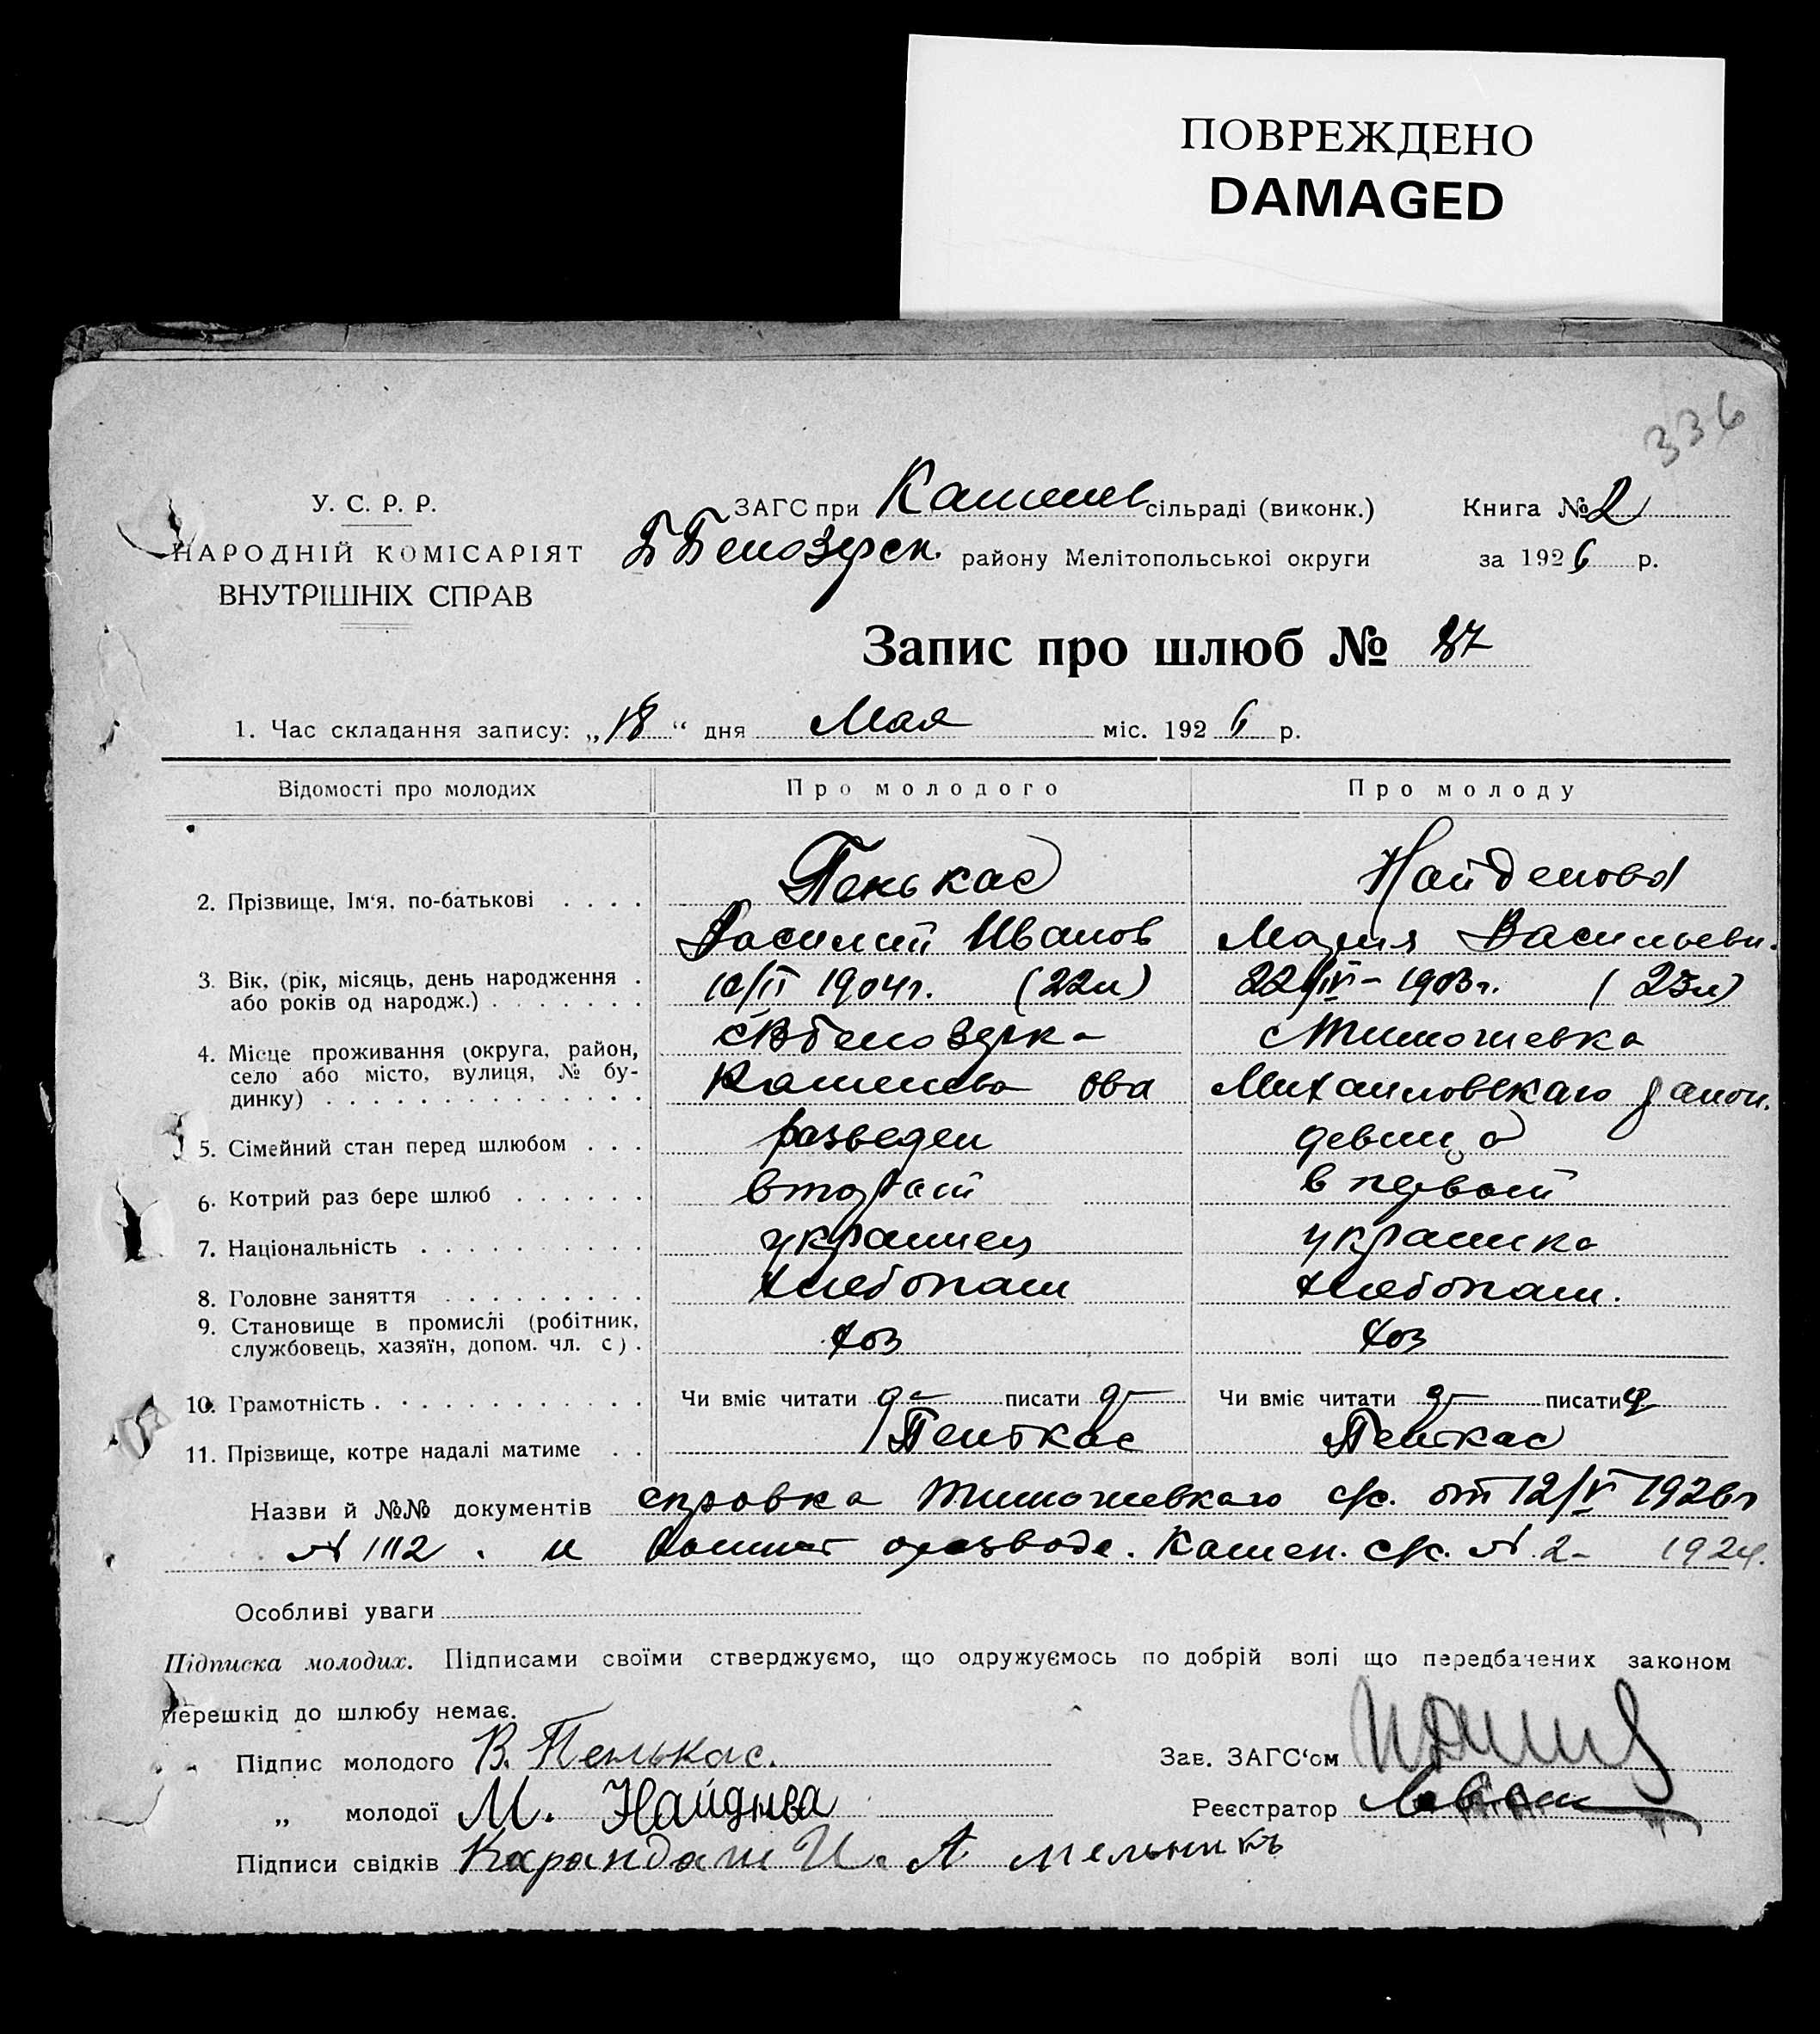 ПОВРЕЖДЕНО
DAMAGED
336
У. С. Р. Р.
НАРОДНІЙ КОМІСАРІЯТ
ВНУТРІШНІХ СПРАВ
ЗАГС при Камыев сільраді (виконк.)
Б Белозерск. району Мелітопольської округи
Книга № 2
за 1926 р.
Запис про шлюб № 37
1. Час складання запису: „18“ дня Мая міс. 1926 р.
Відомості про молодих Про молодого Про молоду
2. Прізвище, Ім‘я, по-батькові . . . . Пенькас Найденова
Василий Иванов Мария Васильевн.
3. Вік, (рік, місяць, день народження . 10/II 1904г. (22л) 22/IV - 1903г. (23л)
або років од народж.) . . . . . . .
4. Місце проживання (округа, район, Белозерка с Тимошевка
село або місто, вулиця, № бу- Михайловскаго район.
динку) . . . . . . . . . . . . . .
5. Сімейний стан перед шлюбом . . . разведен девица
6. Котрий раз бере шлюб . . . . . . второй в первой
7. Національність . . . . . . . . . . украинец украинка
8. Головне заняття . . . . . . . . . хлебопаш хлебопаш.
9. Становище в промислі (робітник, хоз хоз
службовець, хазяїн, допом. чл. с) .
10. Грамотність . . . . . . . . . . . . Чи вміє читати да писати д Чи вміє читати д писати д
11. Прізвище, котре надалі матиме . . Пенькас Пенькас
Назви й №№ документів справка Тимошевкаго с/с. от 12/V 1926г
№ 1112 . и о разводе. Камен. с/с. № 2 - 1924.
Особливі уваги
Підписка молодих. Підписами своїми стверджуємо, що одружуємось по добрій волі що передбачених законом
перешкід до шлюбу немає.
Підпис молодого В. Пенькас. Зав. ЗАГС‘ом
„ молодої М. Найднва Реєстратор
Підписи свідків Карандаш И. А мельникъ